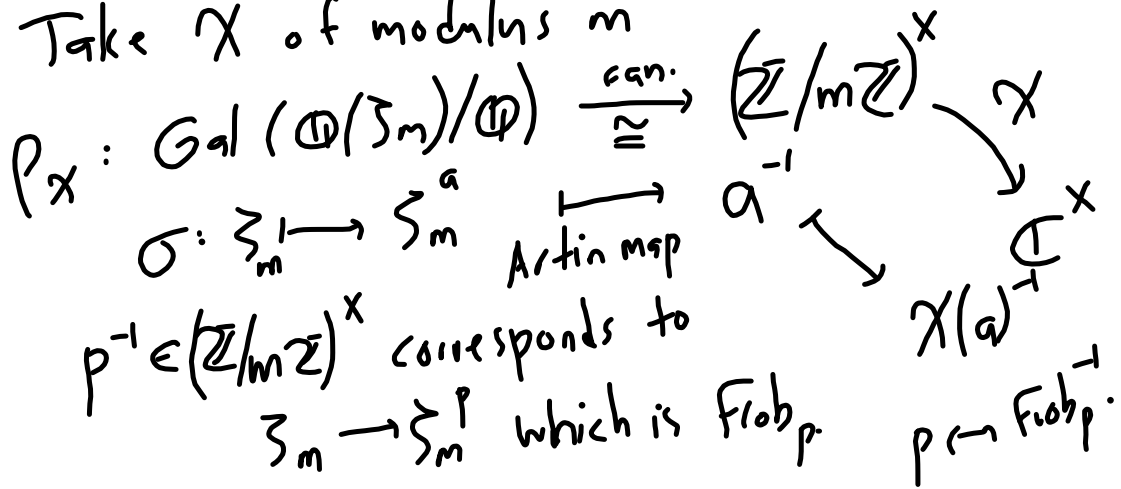 Take χ of modulus m
ρ_χ : Gal (ℚ(ζ_m)/ℚ) →^{can.}_≅ (ℤ/mℤ)^× χ
σ: ζ_m ↦ ζ_m^a ↦ a^{-1} ℂ^×
Artin map χ(a)^{-1}
p^{-1} ∈ (ℤ/mℤ)^× corresponds to
ζ_m → ζ_m^p which is Frob_p. p ↔ Frob_p^{-1}.